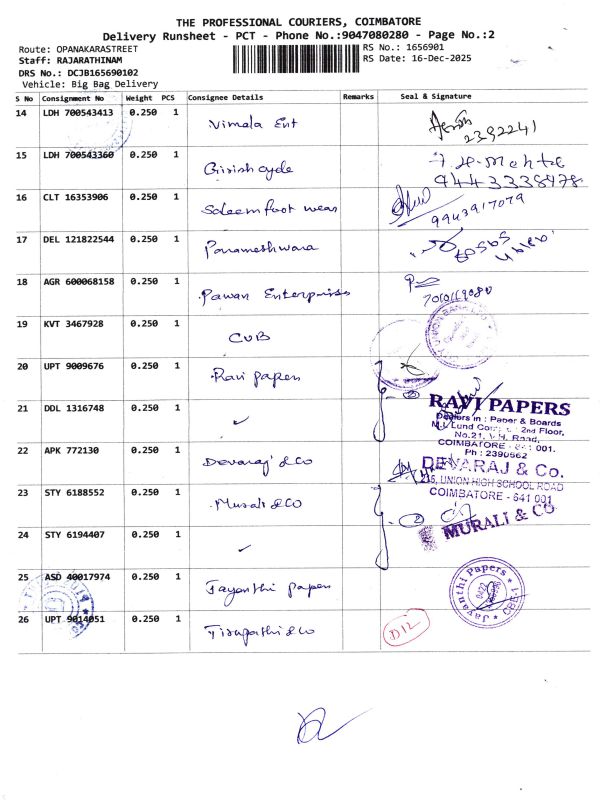 THE PROFESSIONAL COURIERS, COIMBATORE
Delivery Runsheet - PCT - Phone No.:9047080280 - Page No.:2
Route: OPANAKARASTREET
RS No.: 1656901
Staff: RAJARATHINAM
RS Date: 16-Dec-2025
DRS No.: DCJB165690102
Vehicle: Big Bag Delivery
S No Consignment No Weight PCS Consignee Details Remarks Seal & Signature
14 LDH 700543413 0.250 1 Vimala Ent
2392241
15 LDH 700543360 0.250 1 Girish cycle
9443338978
16 CLT 16353906 0.250 1 Saleem foot wear
9943917079
17 DEL 121822544 0.250 1 Parameshwara
18 AGR 600068158 0.250 1 Pawan Enterprises
19 KVT 3467928 0.250 1 CUB
20 UPT 9009676 0.250 1 Ravi papers
21 DDL 1316748 0.250 1 ✓
RAVI PAPERS
Dealers in : Paper & Boards
2nd Floor,
No.21, V.H. Road,
COIMBATORE - 641 001.
Ph : 2390562
22 APK 772130 0.250 1 Devaraj & Co
DEVARAJ & Co.
215, UNION HIGH SCHOOL ROAD
COIMBATORE - 641 001
23 STY 6188552 0.250 1 Murali & Co
2
MURALI & CO
24 STY 6194407 0.250 1 ✓
25 ASD 40017974 0.250 1 Jayanthi papers
Jayanthi Papers
CBE-1
26 UPT 9014051 0.250 1 Tirupathi & Co
D12